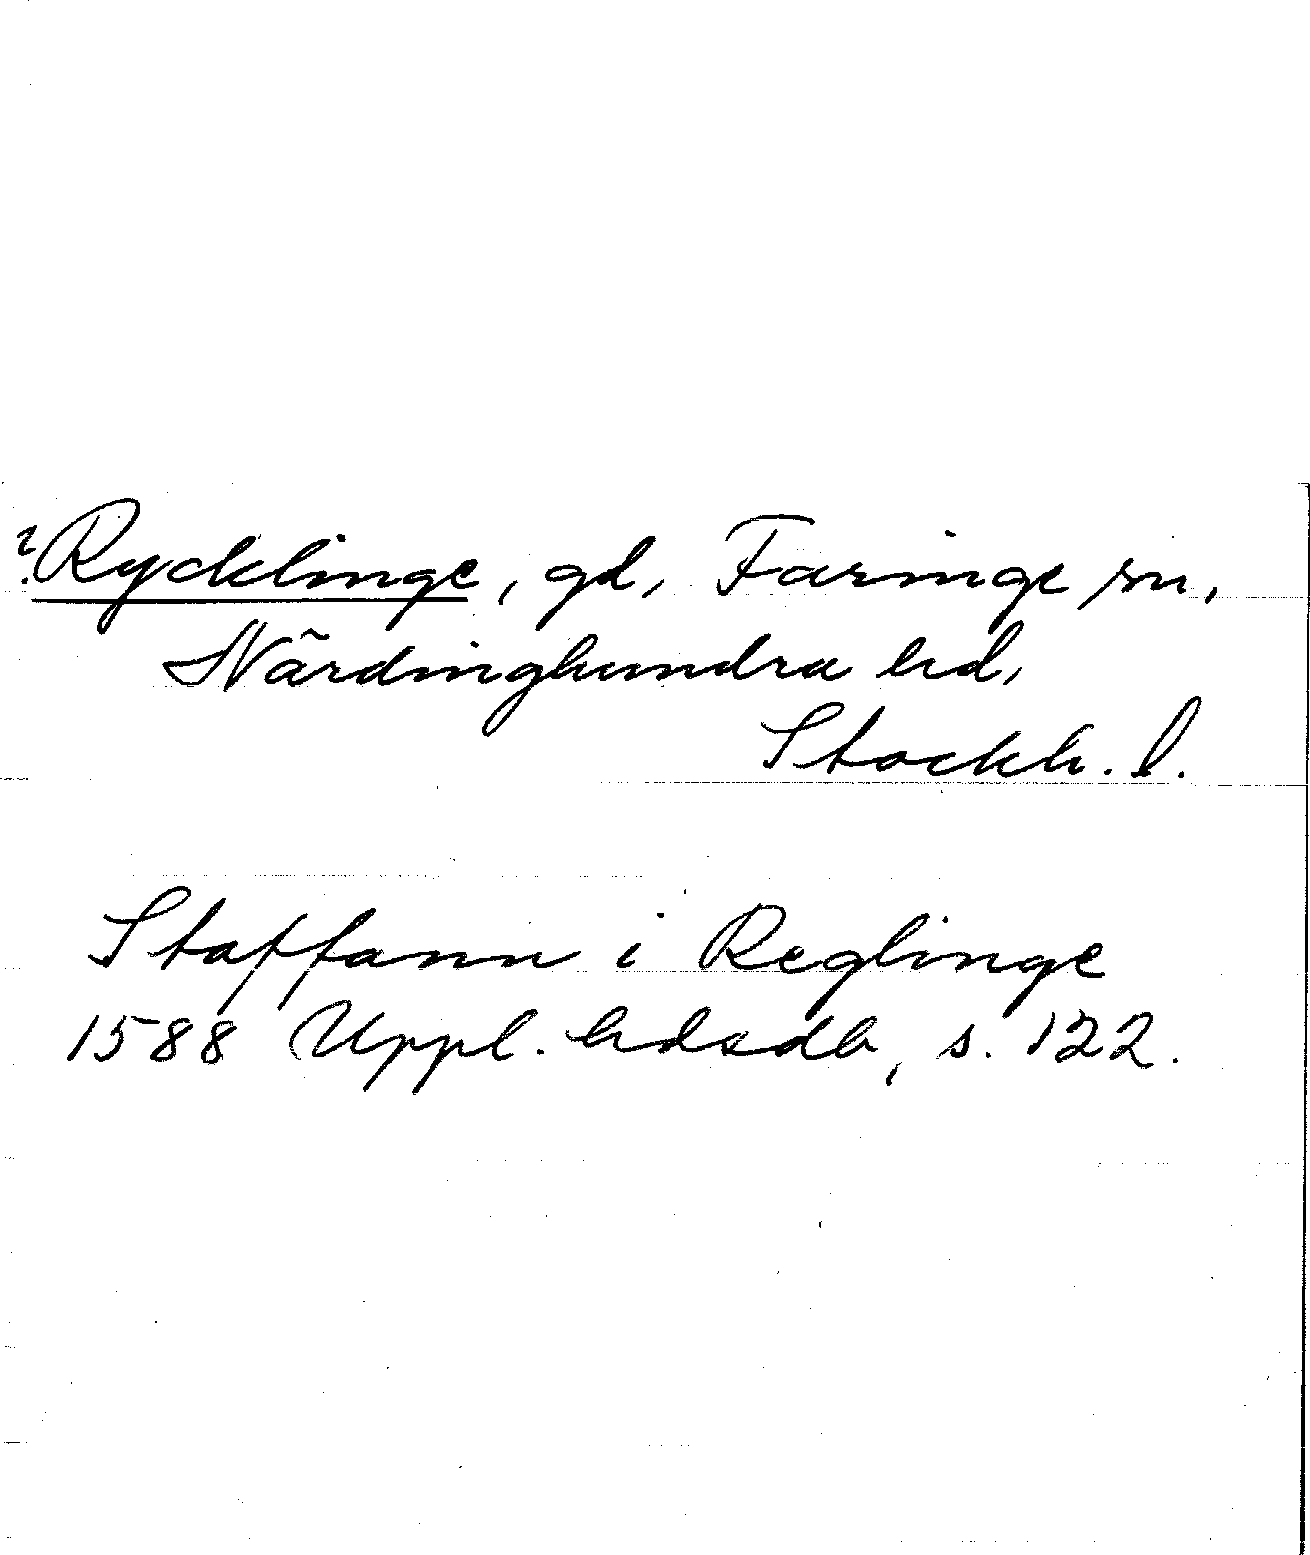 ?Rycklinge, gd, Faringe sn,
Närdinghundra hd,
Stockh. l.
Staffann i Reglinge
1588 Uppl. hdsdb, s. 122.